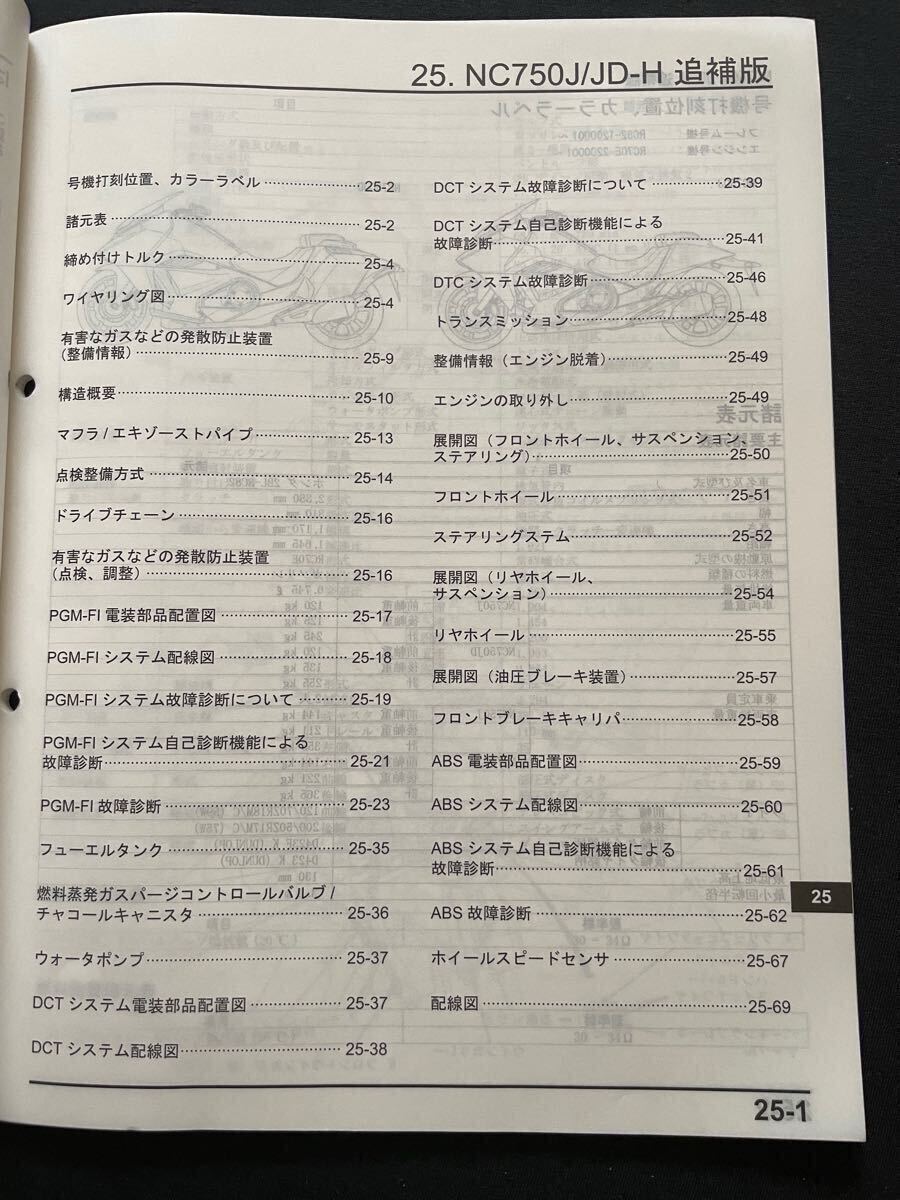 25. NC750J/JD-H 追補版
号機打刻位置、カラーラベル 25-2
諸元表 25-2
締め付けトルク 25-4
ワイヤリング図 25-4
有害なガスなどの発散防止装置
(整備情報) 25-9
構造概要 25-10
マフラ / エキゾーストパイプ 25-13
点検整備方式 25-14
ドライブチェーン 25-16
有害なガスなどの発散防止装置
(点検、調整) 25-16
PGM-FI 電装部品配置図 25-17
PGM-FI システム配線図 25-18
PGM-FI システム故障診断について 25-19
PGM-FI システム自己診断機能による
故障診断 25-21
PGM-FI 故障診断 25-23
フューエルタンク 25-35
燃料蒸発ガスパージコントロールバルブ /
チャコールキャニスタ 25-36
ウォータポンプ 25-37
DCT システム電装部品配置図 25-37
DCT システム配線図 25-38
DCT システム故障診断について 25-39
DCT システム自己診断機能による
故障診断 25-41
DTC システム故障診断 25-46
トランスミッション 25-48
整備情報（エンジン脱着） 25-49
エンジンの取り外し 25-49
展開図（フロントホイール、サスペンション、
ステアリング） 25-50
フロントホイール 25-51
ステアリングステム 25-52
展開図（リヤホイール、
サスペンション） 25-54
リヤホイール 25-55
展開図（油圧ブレーキ装置） 25-57
フロントブレーキキャリパ 25-58
ABS 電装部品配置図 25-59
ABS システム配線図 25-60
ABS システム自己診断機能による
故障診断 25-61
ABS 故障診断 25-62
ホイールスピードセンサ 25-67
配線図 25-69
25
25-1